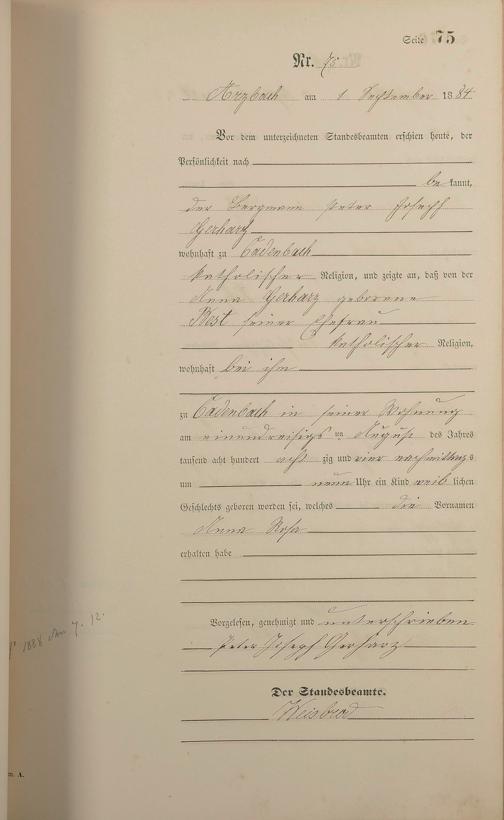 Seite 75
Nr. 75
Arzbach am 1 September 1884
Vor dem unterzeichneten Standesbeamten erschien heute, der
Persönlichkeit nach
bekannt,
der Bergmann Peter Joseph
Gerharz
wohnhaft zu Cadenbach
katholischer Religion, und zeigte an, daß von der
Anna Gerharz geborene
Best seiner Ehefrau
katholischer Religion,
wohnhaft bei ihm
zu Cadenbach in seiner Wohnung
am einunddreisigsten August des Jahres
tausend acht hundert achtzig und vier nachmittags
um neun Uhr ein Kind weiblichen
Geschlechts geboren worden sei, welches die Vornamen
Anna Rosa
erhalten habe
Vorgelesen, genehmigt und unterschrieben
Peter Joseph Gerharz
Der Standesbeamte.
Weisbrod
1888 den 7. 12.
A.